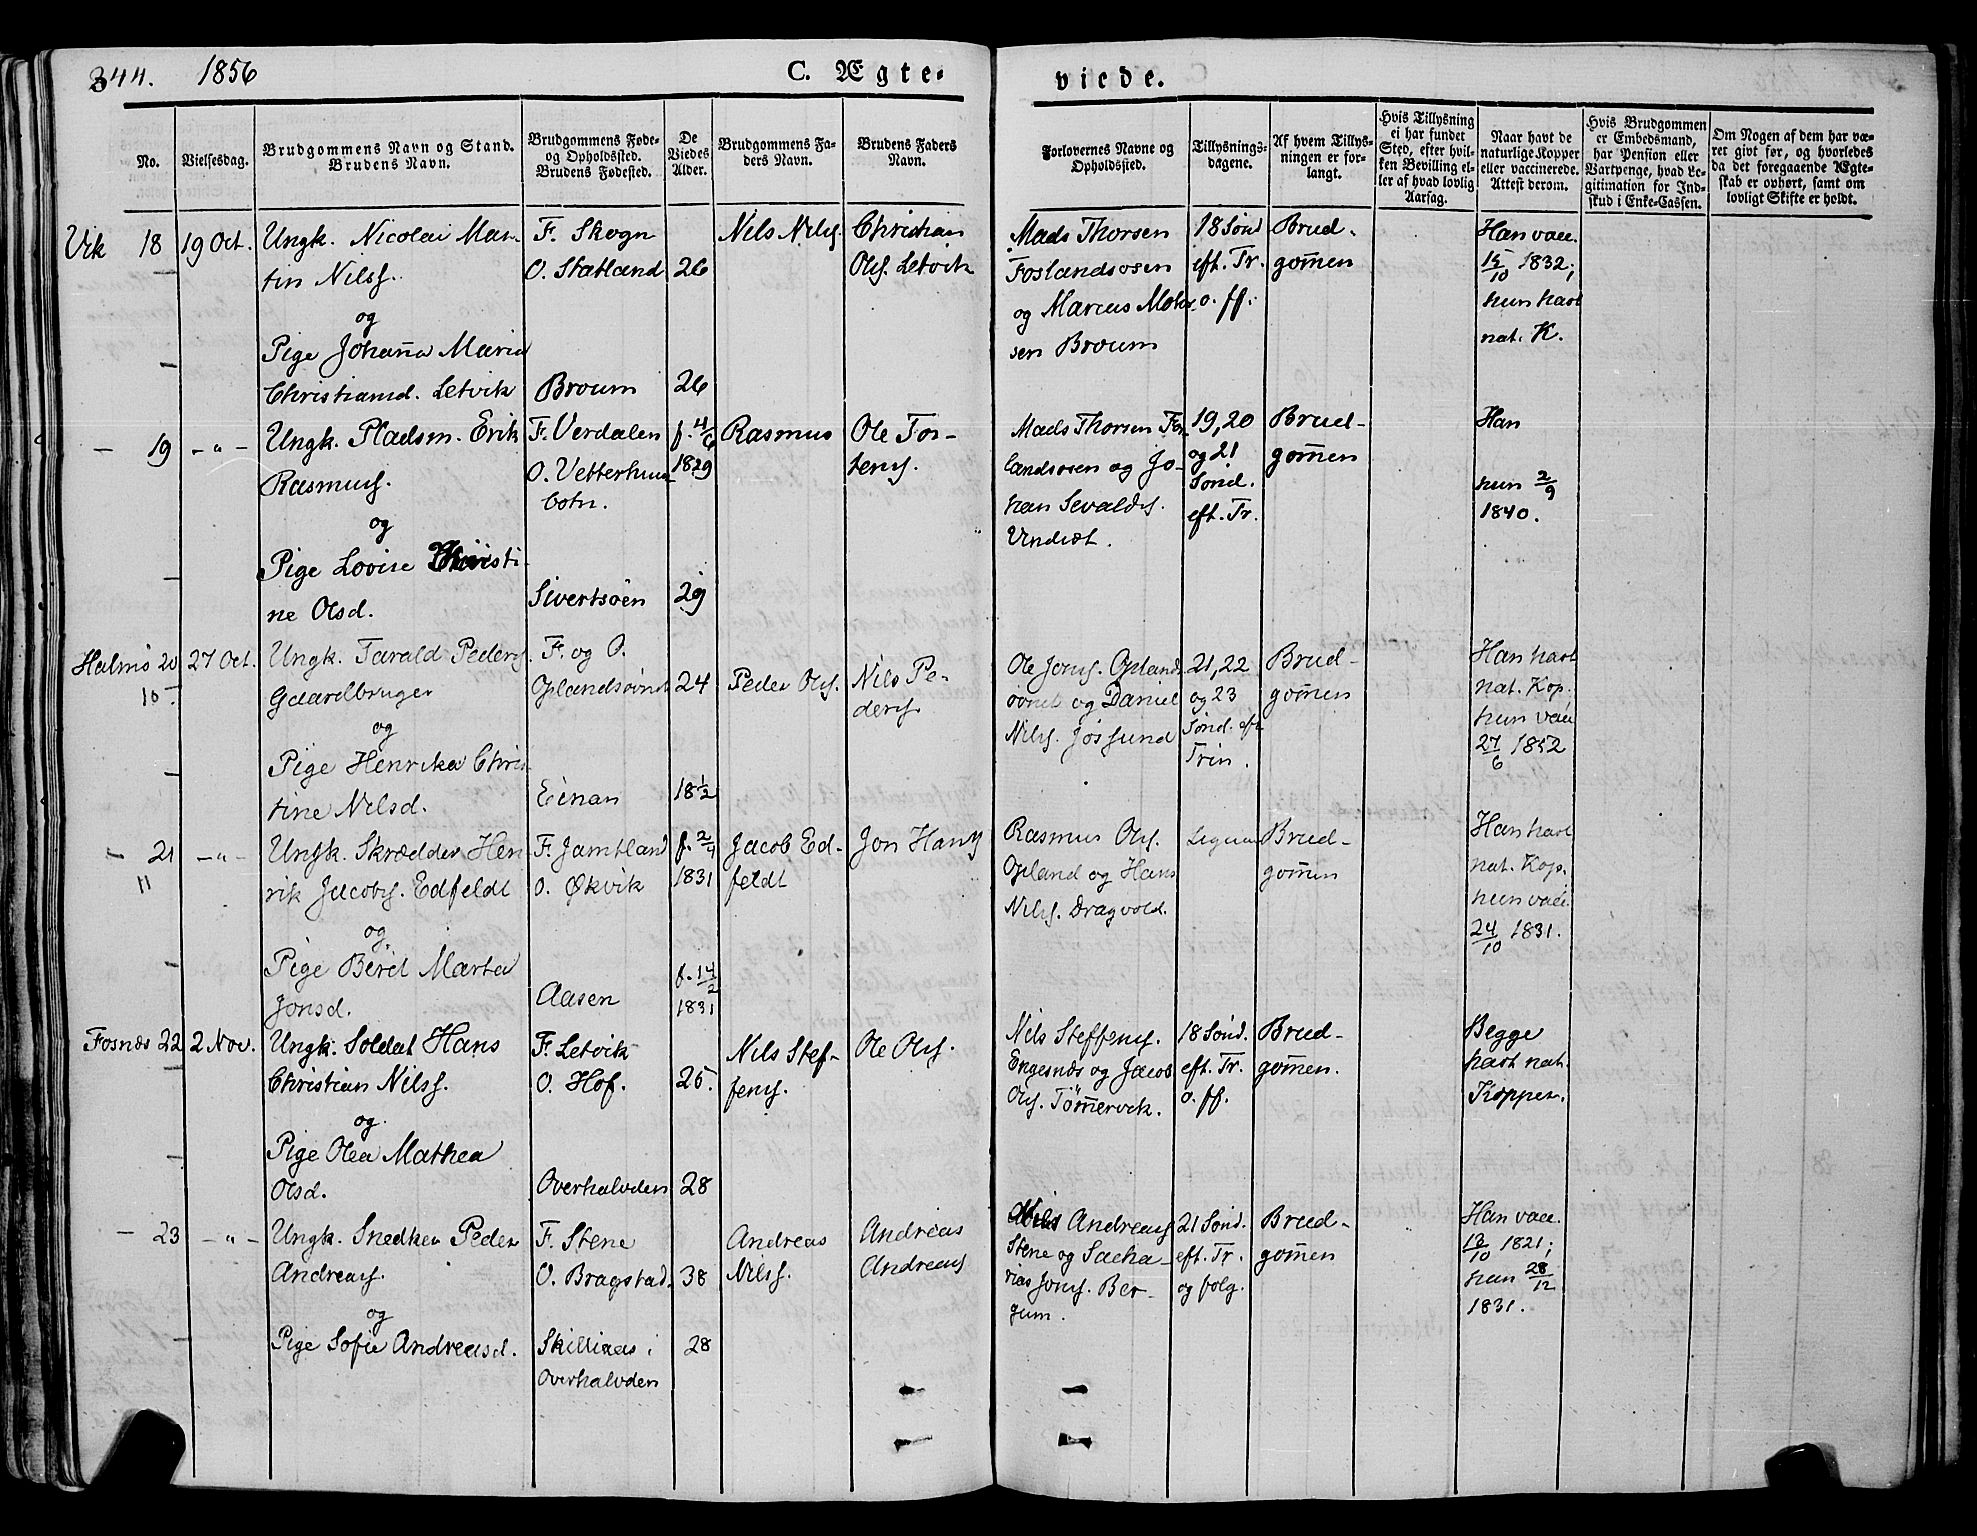 344. 1856 C. Ægte- viede.
No.
Vielsesdag.
Brudgommens Navn og Stand.
Brudens Navn.
Brudgommens Føde-
og Opholdssted.
Brudens Fødested.
De
Viedes
Alder.
Brudgommens Fa-
ders Navn.
Brudens Faders
Navn.
Forlovernes Navne og
Opholdssted.
Tillysnings-
dagene.
Af hvem Tillys-
ningen er for-
langt.
Hvis Tillysning
ei har fundet
Sted, efter hvil-
ken Bevilling el-
ler af hvad lovlig
Aarsag.
Naar havt de
naturlige Kopper
eller vaccinerede.
Attest derom.
Hvis Brudgommen
er Embedsmand,
har Pension eller
Vartpenge, hvad Le-
gitimation for Ind-
skud i Enke-Cassen.
Om Nogen af dem har væ-
ret givt før, og hvorledes
da det foregaaende Ægte-
skab er ophørt, samt om
lovligt Skifte er holdt.
Vik 18
19 Oct.
Ungk. Nicolai Mar-
tin Nilss.
og
Pige Johanna Maria
Christiansd. Letvik
F. Skogn
O. Statland
Broum
26
26
Nils Nilss.
Christian
Ols. Letvik
Mads Thorsen
Foslandsosen
og Marcus
sen Broum
18 Sönd
eft. Tr.
o. ff.
Brud-
gomen
Han vacc.
15/10 1832;
hun havt
nat. K.
- 19
- " -
Ungk. Pladsm. Erik
Rasmuss.
og
Pige Lovise Christi-
ne Olsd.
F. Verdalen
O. Vetterhus-
botn.
Sivertsöen
f. 4/6
1829
29
Rasmus
Ole Tos-
tens.
Mads Thorsen Fos-
landsosen og Jo-
han Sevalds.
Vindset.
19, 20
og 21
Sönd.
eft. Tr.
Brud-
gomen
Han
hun 2/9
1840.
Halmö 20
10
27 Oct.
Ungk. Tarald Peders.
Gaardbruger
og
Pige Henrika Chris-
tine Nilsd.
F. og O.
Oplandsövnet
Einan
24
18 1/2
Peder Ols.
Nils Pe-
ders.
Ole Jons. Oplands-
övnet og Daniel
Nils. Jössund
21, 22
og 23
Sönd. eft
Trin.
Brud-
gomen
Han havt
nat. Kop.
hun vacc
27/6 1852
- 21
11
- " -
Ungk. Skrædder Hen-
rik Jacobs. Edfeldt
og
Pige Beret Marta
Jonsd.
F. Jamtland
O. Økvik
Aasen
f. 2/4
1831
f. 14/2
1831
Jacob Ed-
feldt
Jon Hans
Rasmus Ols.
Opland og Hans
Nils. Dragvold.
Brud-
gomen
Han havt
nat. Kop.
hun vacc.
24/10 1831.
Fosnæs 22
2 Nov.
Ungk. Soldat Hans
Christian Nilss.
og
Pige Olea Mathea
Olsd.
F. Letvik
O. Hof.
Overhalvden
25.
28
Nils Stef-
fens.
Ole Ols.
Nils Steffens.
Engesnæs og Jacob
Ols. Tömervik.
18 Sönd.
eft. Tr.
o. ff.
Brud-
gomen.
Begge
havt nat.
Kopper.
- 23
- " -
Ungk. Snedker Peder
Andreas.
og
Pige Sofie Andreasd.
F. Stene
O. Bragstad.
Skillaas i
Overhalvden
38
28
Andreas
Nilss.
Andreas
Andreass
Nils Andreass
Stene og Sacha-
rias Jons. Ber-
gum.
21 Sönd.
eft. Tr.
og fölg.
Brud-
gomen
Han vacc.
13/10 1821;
hun 28/12
1831.